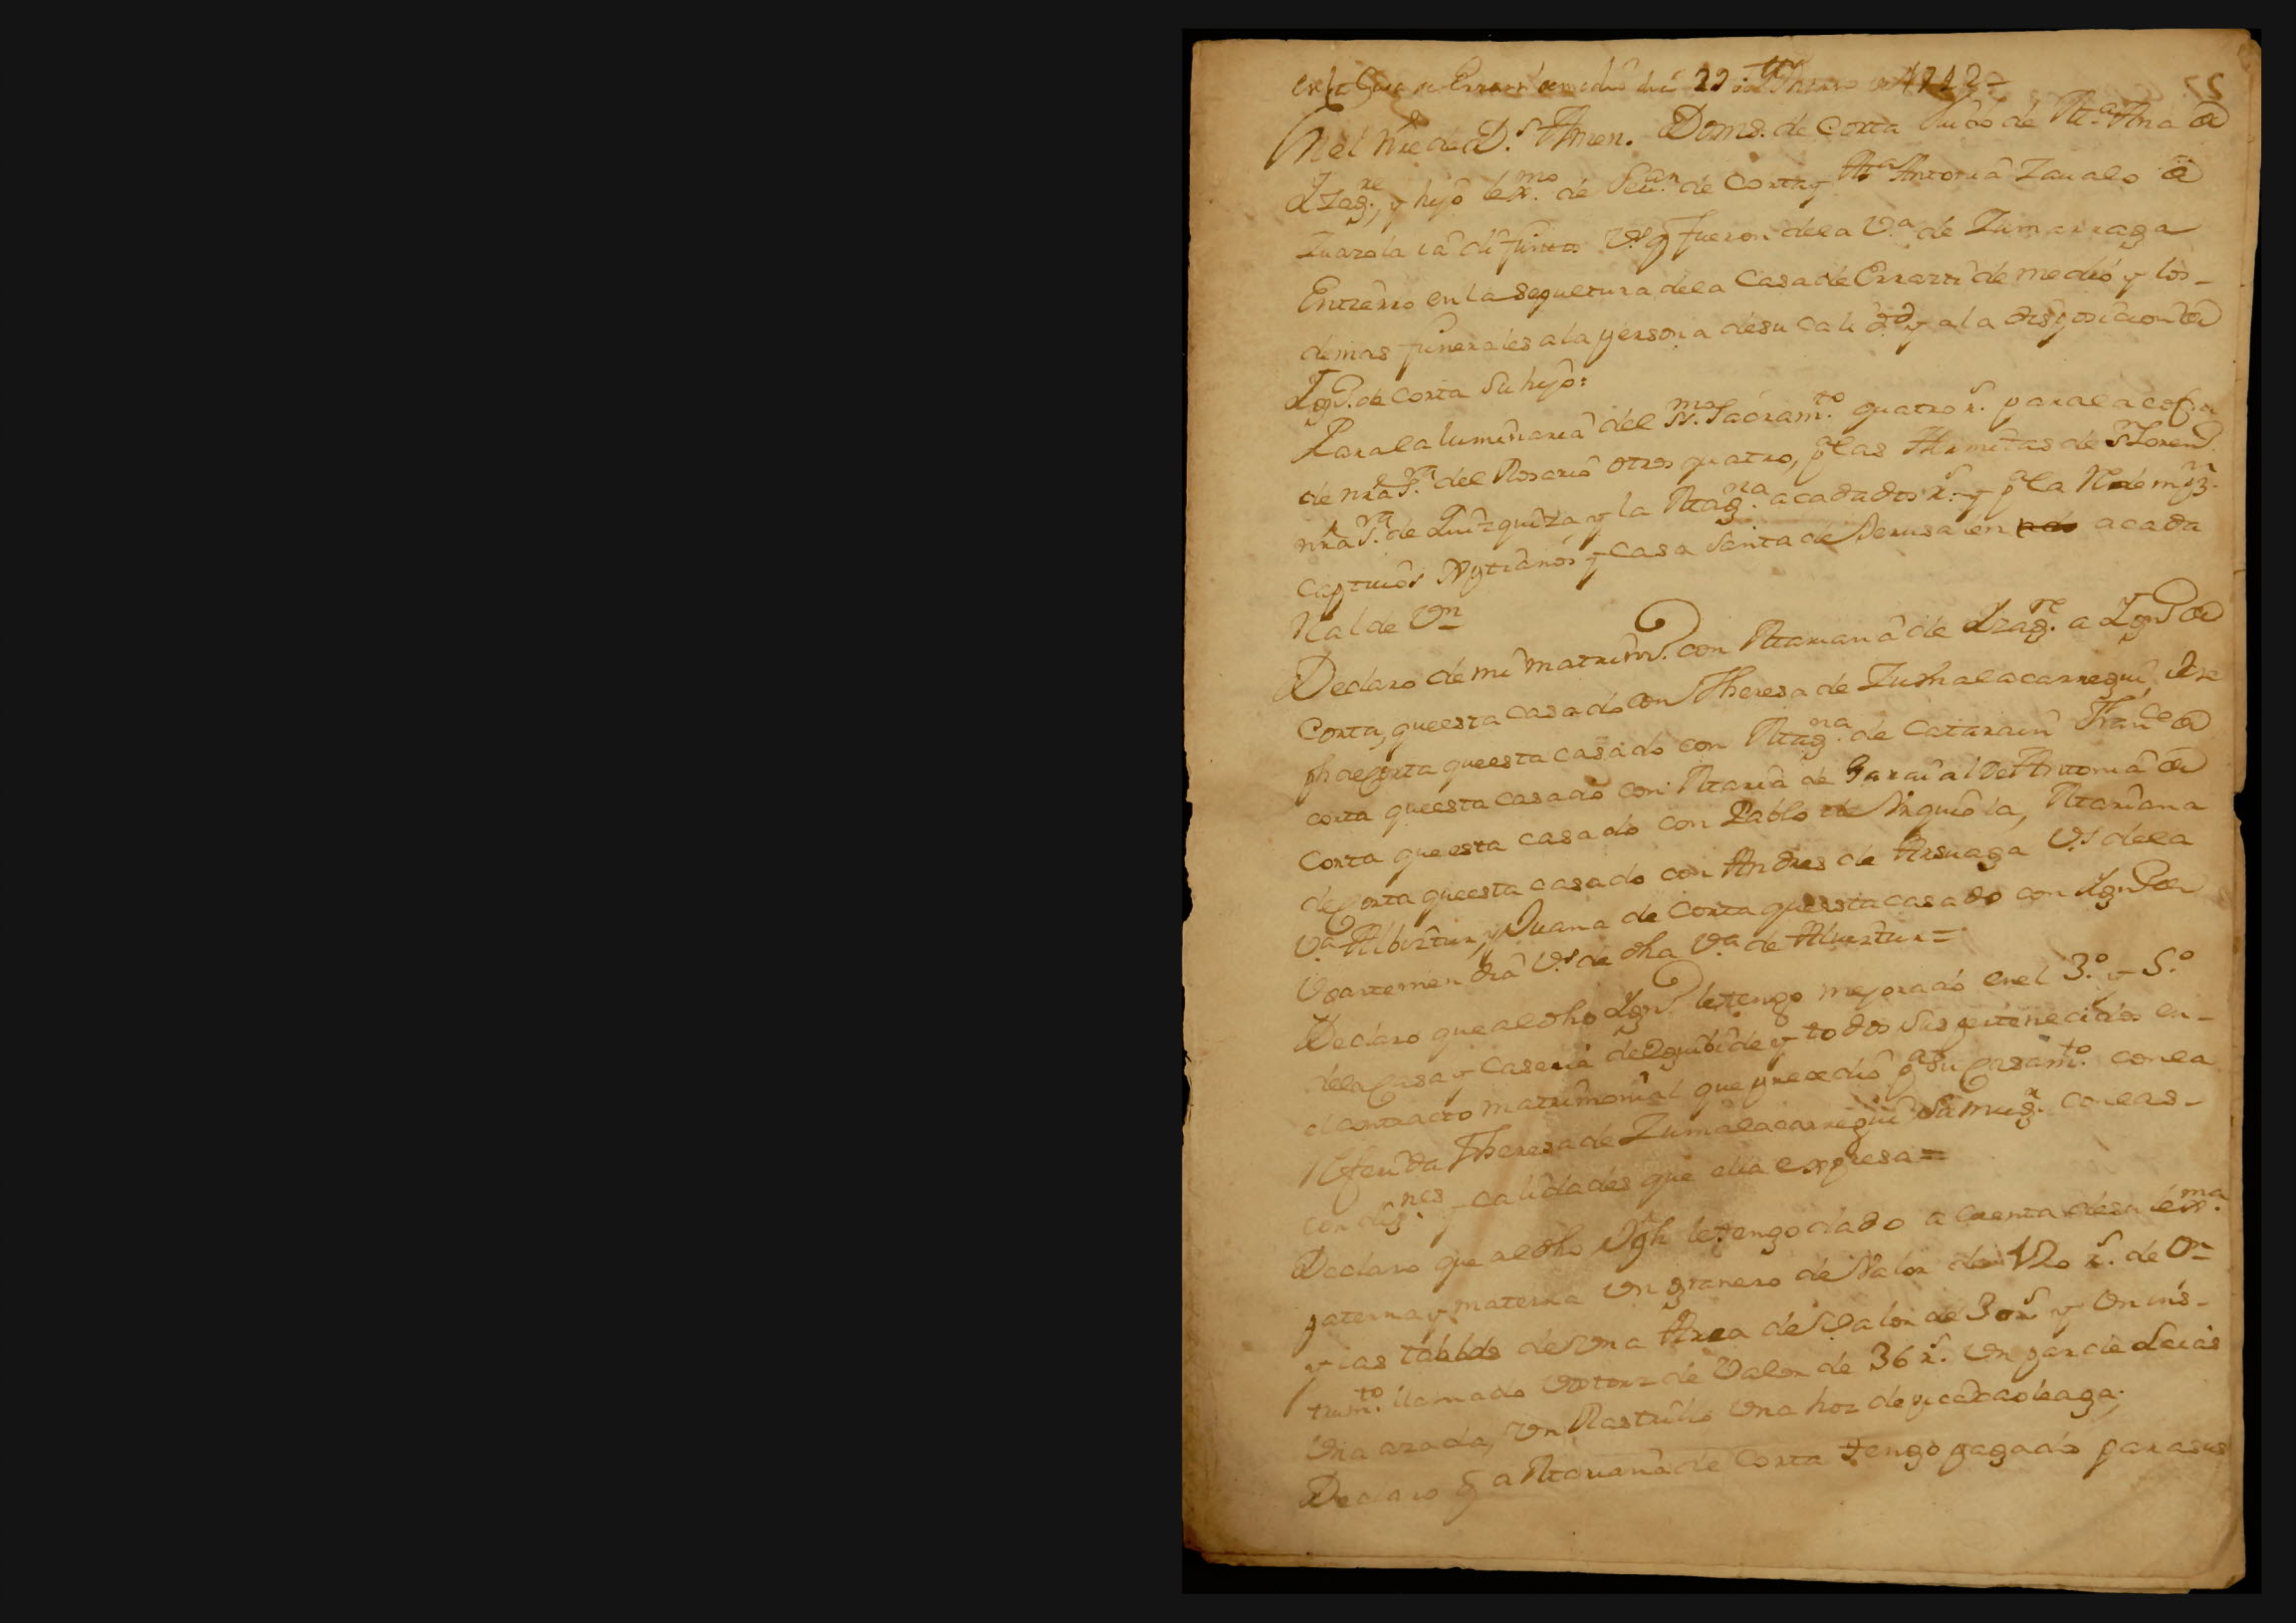 en la Casa de Errazti de medio dia 29 de Henero de 1742=
55
Nel Nre de D.s Amen. Dom.o de Corta Viudo de M.a Ana de
Yzag.re, y hijo lex.mo de Seu.an de Corta y M.a Antonia Zaualo de
Zuazola ia difuntos V.s q fueron dela V.a de Zumarraga
Entierro en la sepultura dela Casa de Errazti de medio y los-
demas funerales ala persona desu calidad y ala disposicion de
Ygn.o de Corta su hijo:
Para la luminaria del SS.mo Sacram.to quatro r.s para la cofra
de nra S.ra del Rosario otros quatro, p.a las Hermitas de S.n Loren.o
nra S.ra de Quizquiza y la Mag.na acada dos r.s y p.a la Redempz.n
captiuos Xptianos y Casa Santa de Jerusalen acada
Real de Vn
Declaro de mi matrim.o con Mariana de Yzag.re a Ygn.o de
Corta, que esta casado con Theresa de Zumalacarregui, Jose
ph de Corta que esta casado con Mag.na de Catarain Fran.co de
corta que esta casado con Maria de Garaialde Antonia de
Corta que esta casado con Pablo de Yrguiola, Mariana
de Corta que esta casado con Andres de Arsuaga V.s dela
V.a Albiztur, y Juana de Corta que esta casado con Ygn.o de
Vgartemendia V.s de dha V.a de Aluiztur=
Declaro que al dho Ygn.o le tengo mejorado en el 3.o y 5.o
dela Casa y Caseria de Eguibide y todos sus pertenecidos en-
el contracto matrimonial que precedio p.a su Casam.to con la
Referida Theresa de Zumalacarregui su mug.r con las-
condiz.nes y calidades que ella expresa=
Declaro que al dho Jph le tengo dado a cuenta desu lex.ma
paterna y materna vn granero de Valor de 120 r.s de Vn
y las tablas de vna Arca de Valor de 30 r.s y Vn ins-
trum.to llamado de Valor de 36 r.s Vn par de Laias
Vna azada, Vn Rastrillo Vna hoz de
Declaro q a Mariana de Corta tengo pagado para sus